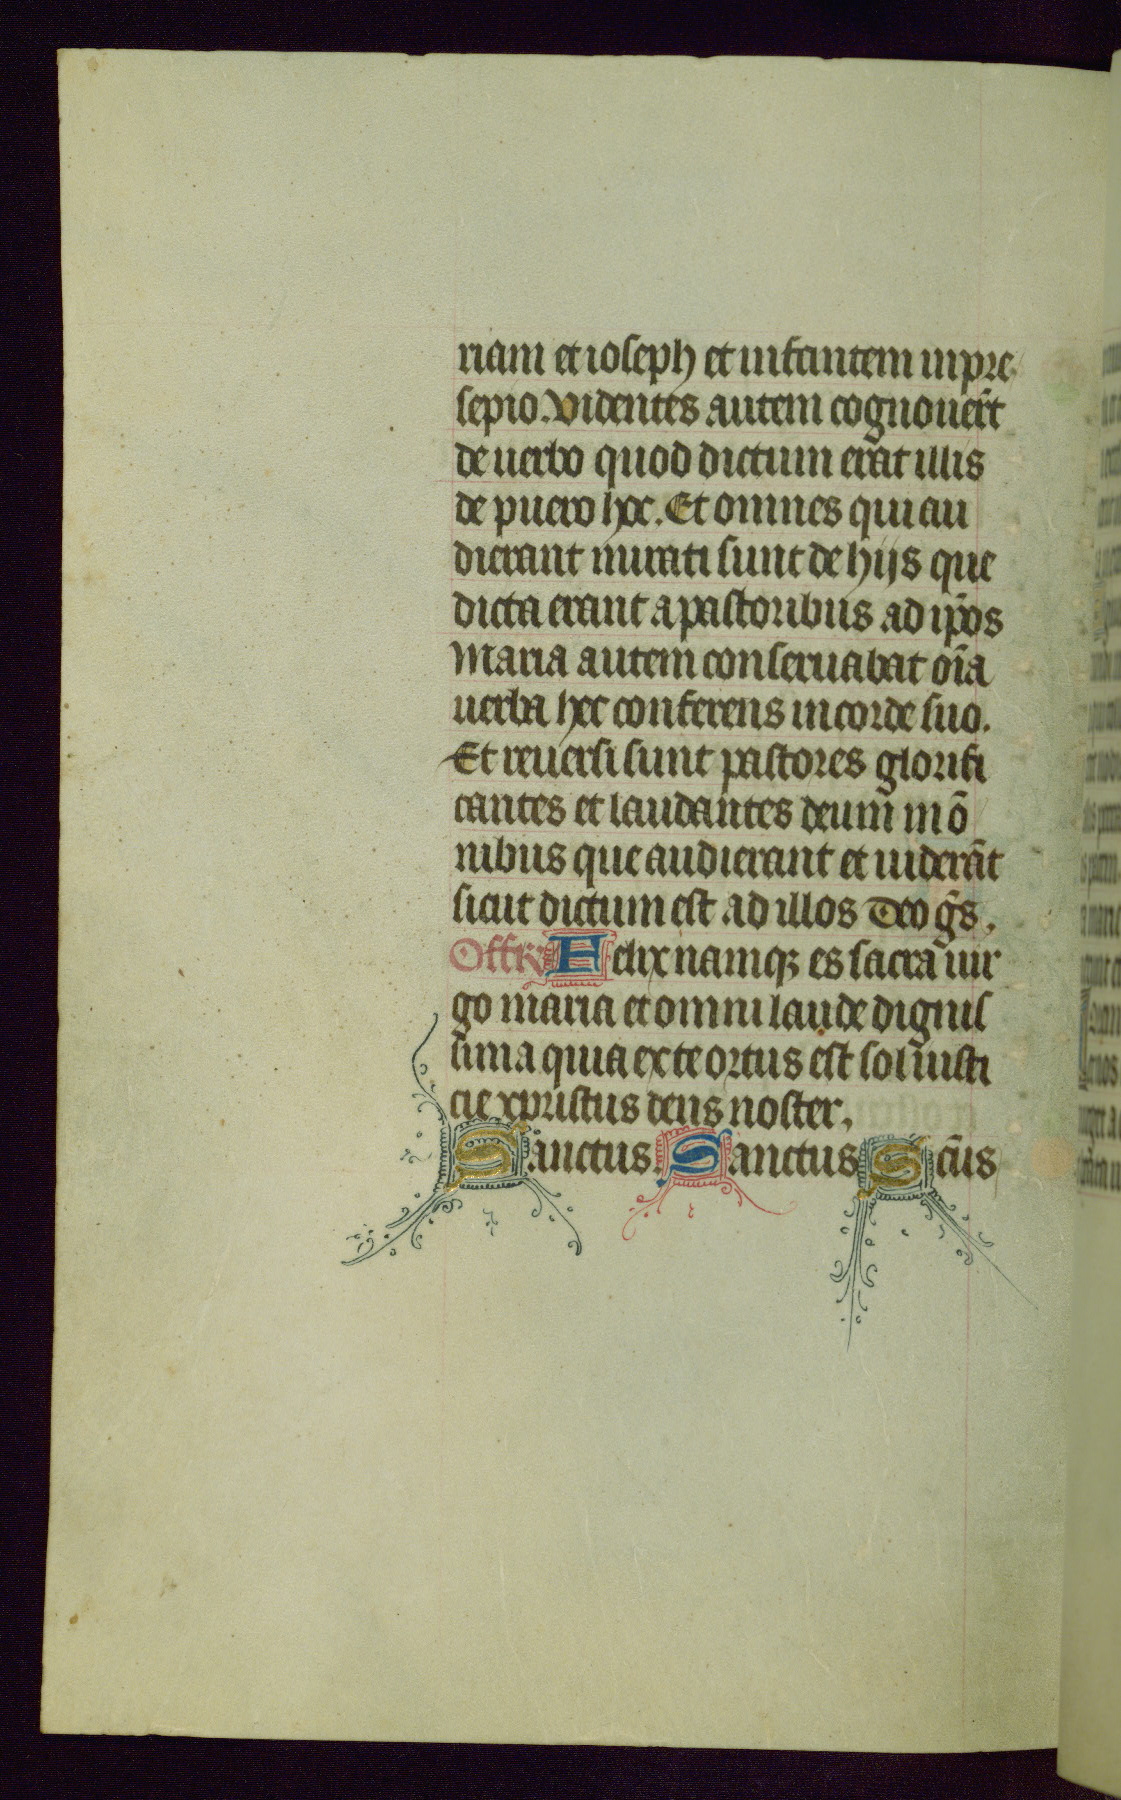 riam et ioseph et infantem in pre
sepio. Videntes autem cognouer̄t
de uerbo quod dictum erat illis
de puero hoc. Et omnes qui au
dierant mirati sunt de hijs que
dicta erant a pastoribus ad ip̄os
Maria autem conseruabat oīa
uerba hec conferens in corde suo.
Et reuersi sunt pastores glorifi
cantes et laudantes deum in ō
nibus que audierant et uiderāt
sicut dictum est ad illos Deo gr̄s.
Offr̄ Felix namq; es sacra uir
go maria et omni laude dignis
sima quia ex te ortus est sol iusti
cie xpristus deus noster.
Sanctus Sanctus Sc̄us